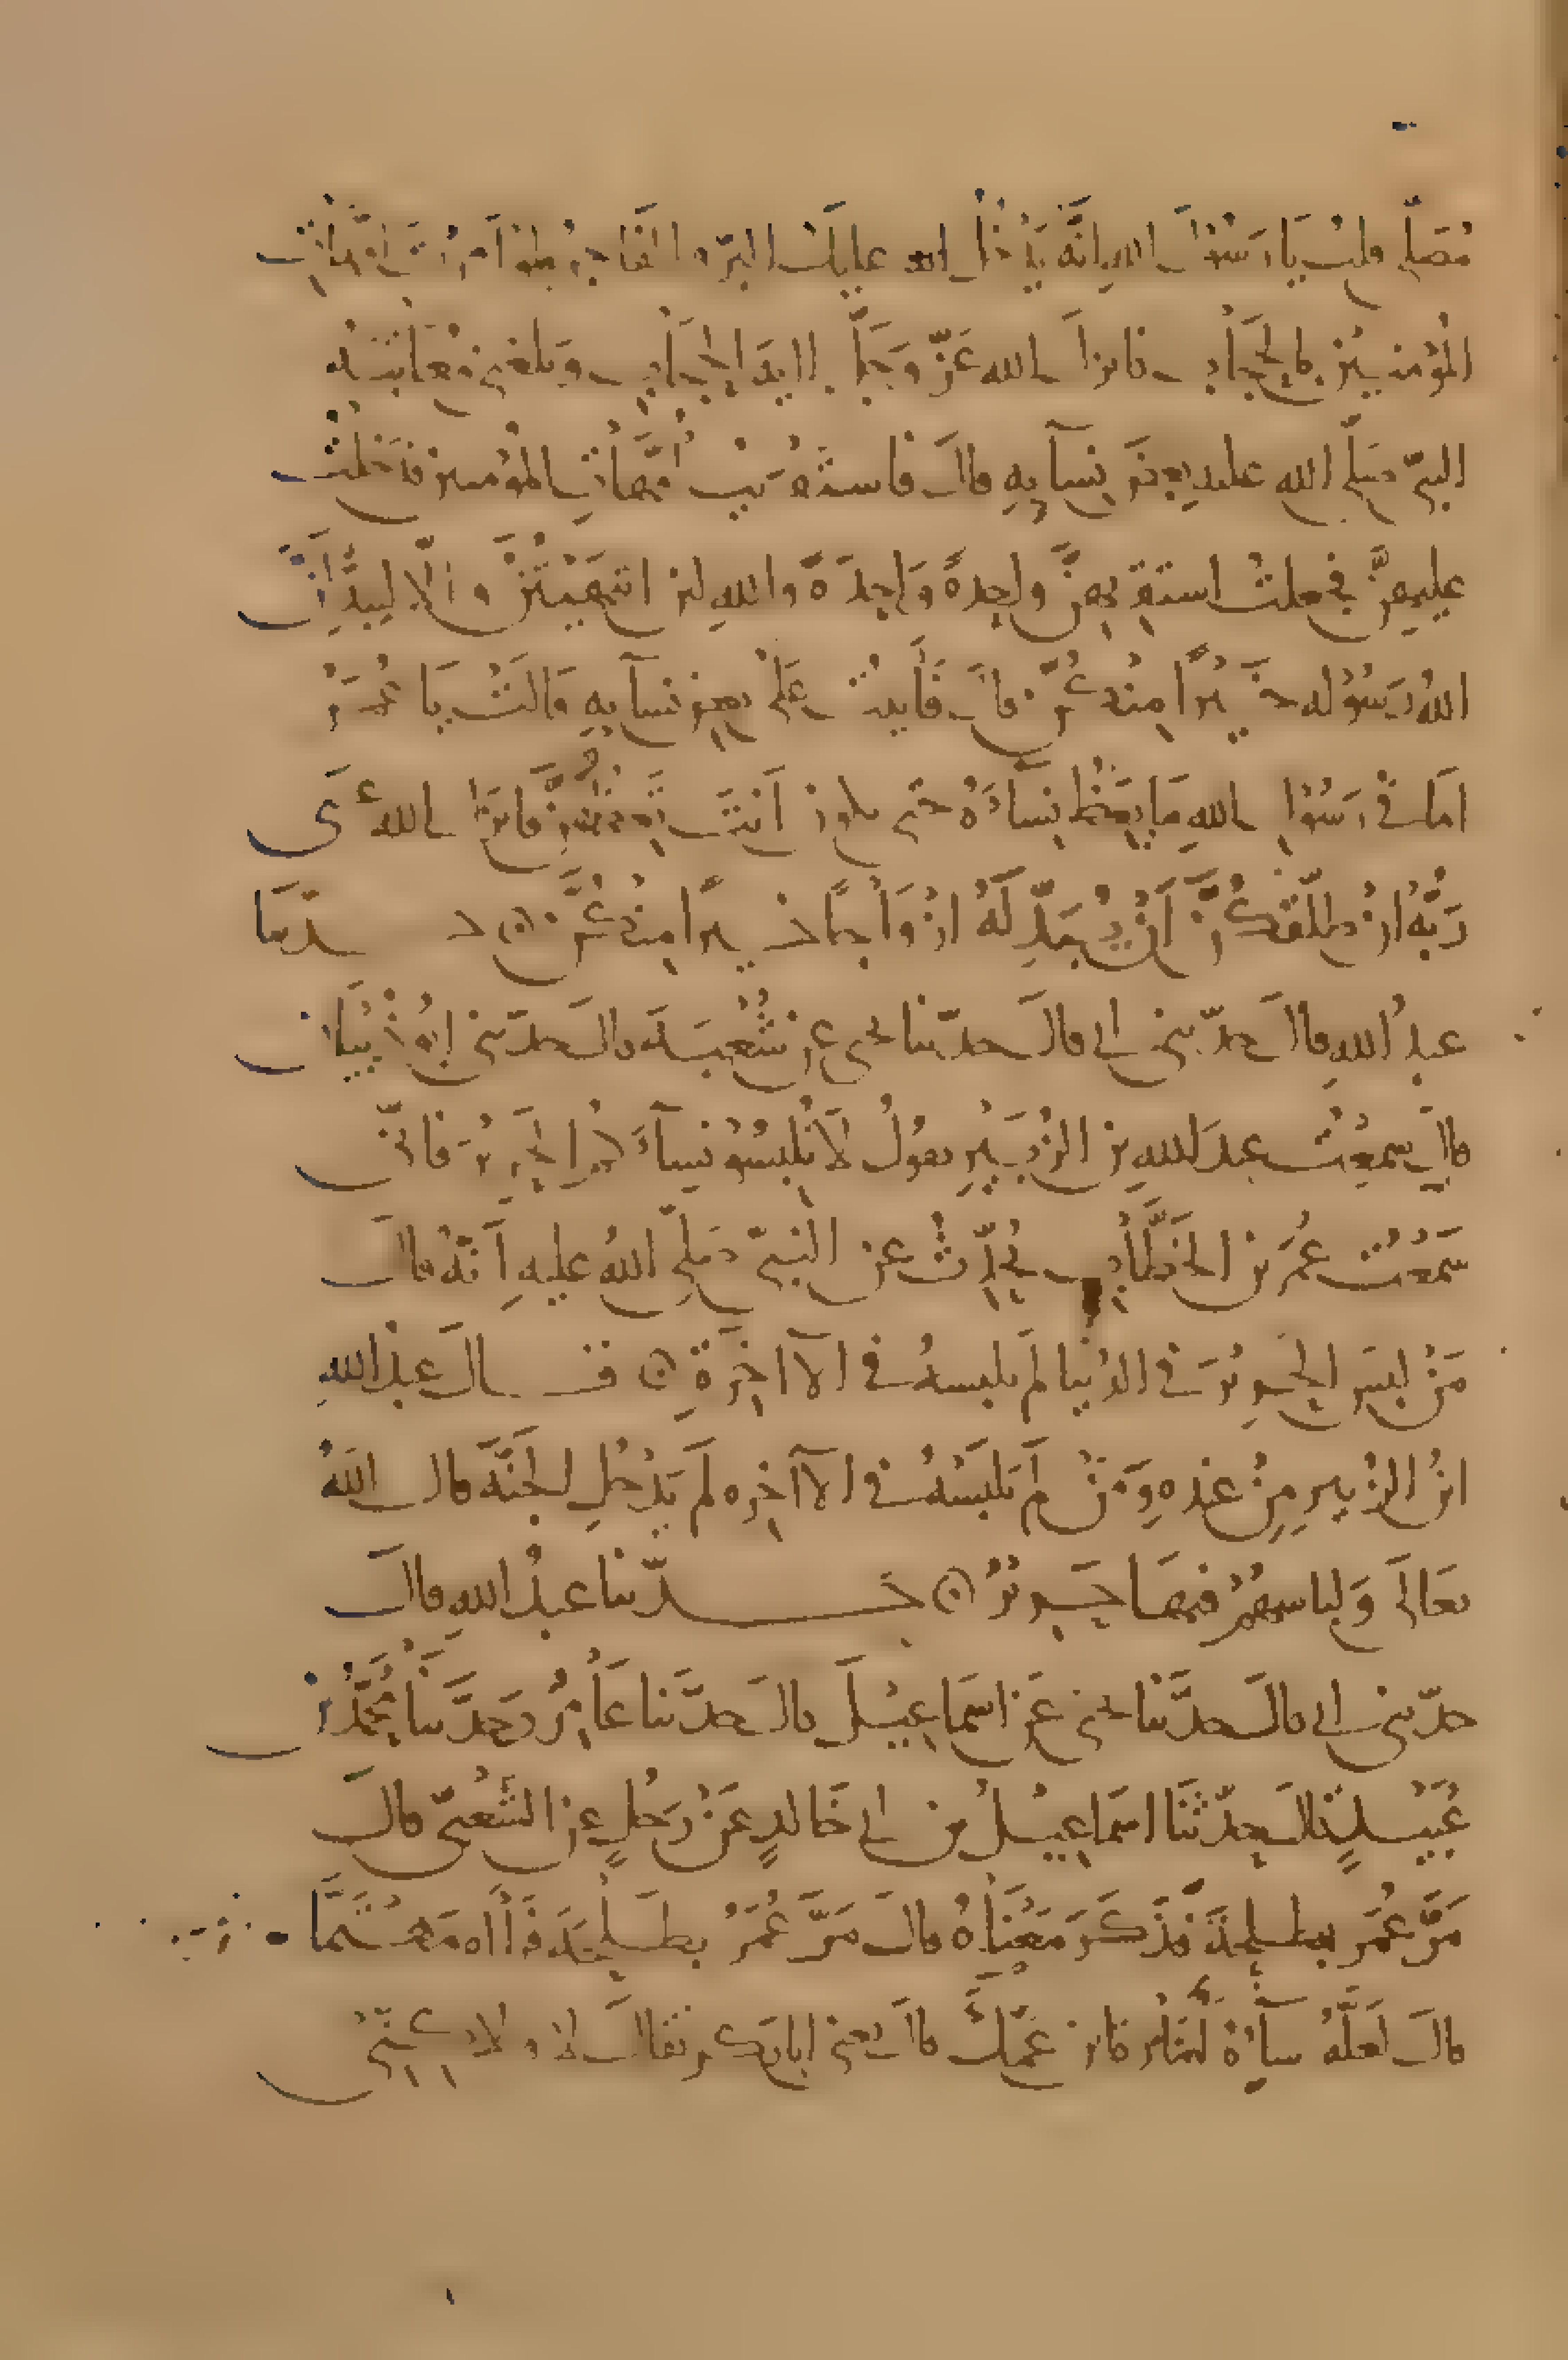 مُصَلّى قلتُ يَا رَسُولَ اللهِ انَّه يَدْخُل الله عليك البرّ والفَاجِرُ فلو اَمرتَ امّهاتِ
المُؤمنينَ بالحِجَابِ فانزلَ الله عَزّ وَجَلَّ اايةَ الحِجَابِ وَبلغنى مُعَاتَبَةُ
النبىّ صَلَّى الله عليه بعضَ نِسآيهِ قالَ فاستَقْرَيْتُ اُمَّهَاتِ المُؤمنين فدَخَلْتُ
عليهنَّ فجعلتُ استَقْرِيهنَّ واحِدةً وَاحِدَةً واللهِ لئن انتَهَيْتُنَّ والّا ليُبَدِّلَنَّ
اللهُ رَسُوله خَيْرًا مِنْكُنَّ قالَ فَأَتيتُ عَلَى بعضِ نسآيهِ قَالَتْ يَا عُمَرُ
اَمَا فى رَسُولِ اللهِ مَا يَعِظُ نِسَاءَهُ حتى تكون اَنتَ تَعِظُهُنَّ فانزَلَ الله عَسَى
رَبُّهُ ان طلّقكُنَّ اَنْ يُبَدِّلَهُ ازْوَاجًا خَيْرًا مِنْكُنَّ حدّثنا
عبدُ اللهِ قالَ حدّثنى ابى قالَ حدّثنا يحيى عن شُعْبَةَ قالَ حدّثنى ابُو ذُبْيَانَ
قالَ سمِعْتُ عبدَ اللهِ بن الزُبَيْرِ يقولُ لَا تُلْبِسُوْا نِسآءَكُمُ الحَرِيْرَ فانّى
سَمِعْتُ عُمَرَ بن الخَطَّابِ يُحَدِّثُ عن النبىّ صَلّى اللهُ عليهِ اَنّهُ قالَ
مَنْ لبِسَ الحَرِيْرَ فى الدُنْيا لَم يلبسهُ فى الاآخِرَةِ قَالَ عبدُ اللهِ
ابنُ الزُبيرِ مِنْ عندِهِ وَمَنْ لَم يَلْبَسْهُ فى الاآخرِه لَم يَدْخُلِ الجَنَّةَ قال اللهُ
تعَالَى وَلباسهُمْ فيهَا حَرِيْرٌ حَدّثنا عبدُ اللهِ قالَ
حدّثنى ابى قالَ حدَّثنا يحيى عَن اسمَاعِيْلَ قالَ حدَّثنا عَامِرٌ وَحدَّثنَا مُحَمَّدُ بن
عُبَيْدٍ قالَ حدّثَنَا اسمَاعِيْلُ بن ابى خَالدٍ عَنْ رَجُلٍ عن الشَعْبىّ قالَ
مَرَّ عُمَر بطلحَةَ فذَكَرَ مَعْنَاهُ قالَ مَرَّ عُمَرُ بطَلْحَةَ فَرَاه مُهْتَمًّا
قالَ لعَلَّهُ سآءَهُ امَارَةُ ابن عَمّكَ قالَ يعنى ابا بَكر فقَالَ لا ولاكِنّى